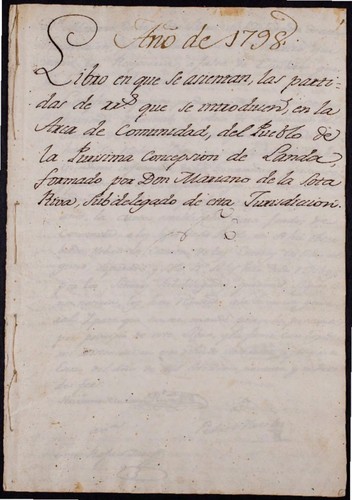 Año de 1798.
Libro en que se asientan, las parti-
das de rr.s que se introducen, en la
Arca de Comunidad, del Pueblo de
la Purisima Concepsion de Landa,
formado por Don Mariano de la Sota
Riva, Subdelegado de esta Jurisdiccion.